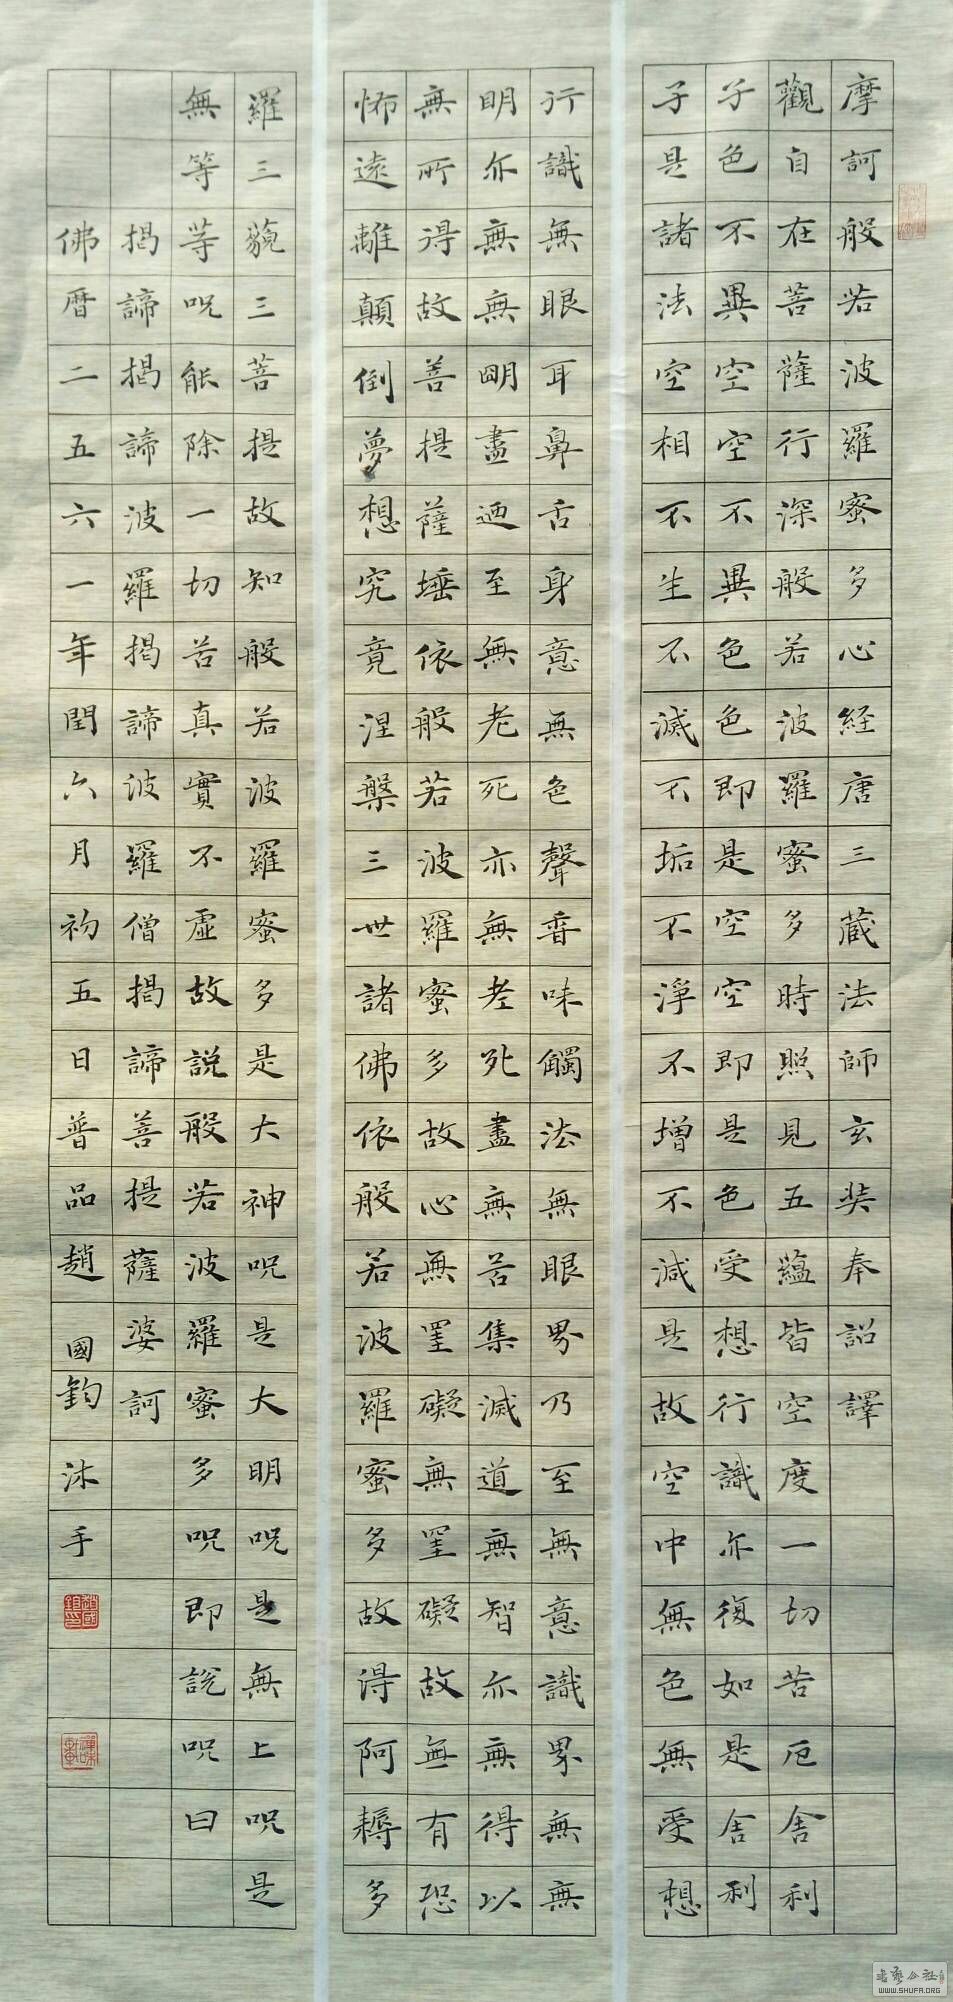 摩訶般若波羅蜜多心経唐三蔵法師玄奘奉詔譯
觀自在菩薩行深般若波羅蜜多時照見五蘊皆空度一切苦厄舍利
子色不異空空不異色色即是空空即是色受想行識亦復如是舍利
子是諸法空相不生不滅不垢不淨不增不減是故空中無色無受想
行識無眼耳鼻舌身意無色聲香味觸法無眼界乃至無意識界無無
明亦無無明盡迺至無老死亦無老死盡無苦集滅道無智亦無得以
無所得故菩提薩埵依般若波羅蜜多故心無罣礙無罣礙故無有恐
怖遠離顛倒夢想究竟涅槃三世諸佛依般若波羅蜜多故得阿耨多
羅三藐三菩提故知般若波羅蜜多是大神呪是大明呪是無上呪是
無等等呪能除一切苦真實不虛故説般若波羅蜜多呪即説呪曰
揭諦揭諦波羅揭諦波羅僧揭諦菩提薩婆訶
佛曆二五六一年閏六月初五日普品趙國鈞沐手
书艺公社
WWW.SHUFA.ORG